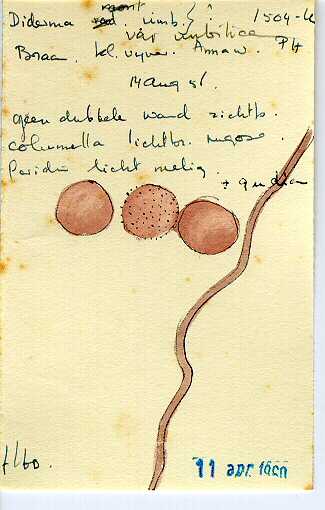 Diderma imb. 1504-k
var umbilica
Braam. kl. vyver. Amaw. PH
14 aug 51.
geen dubbele wand zichtb.
columella lichtbr. rugose.
Peridie licht melig.
f/60.
11 apr. 1960